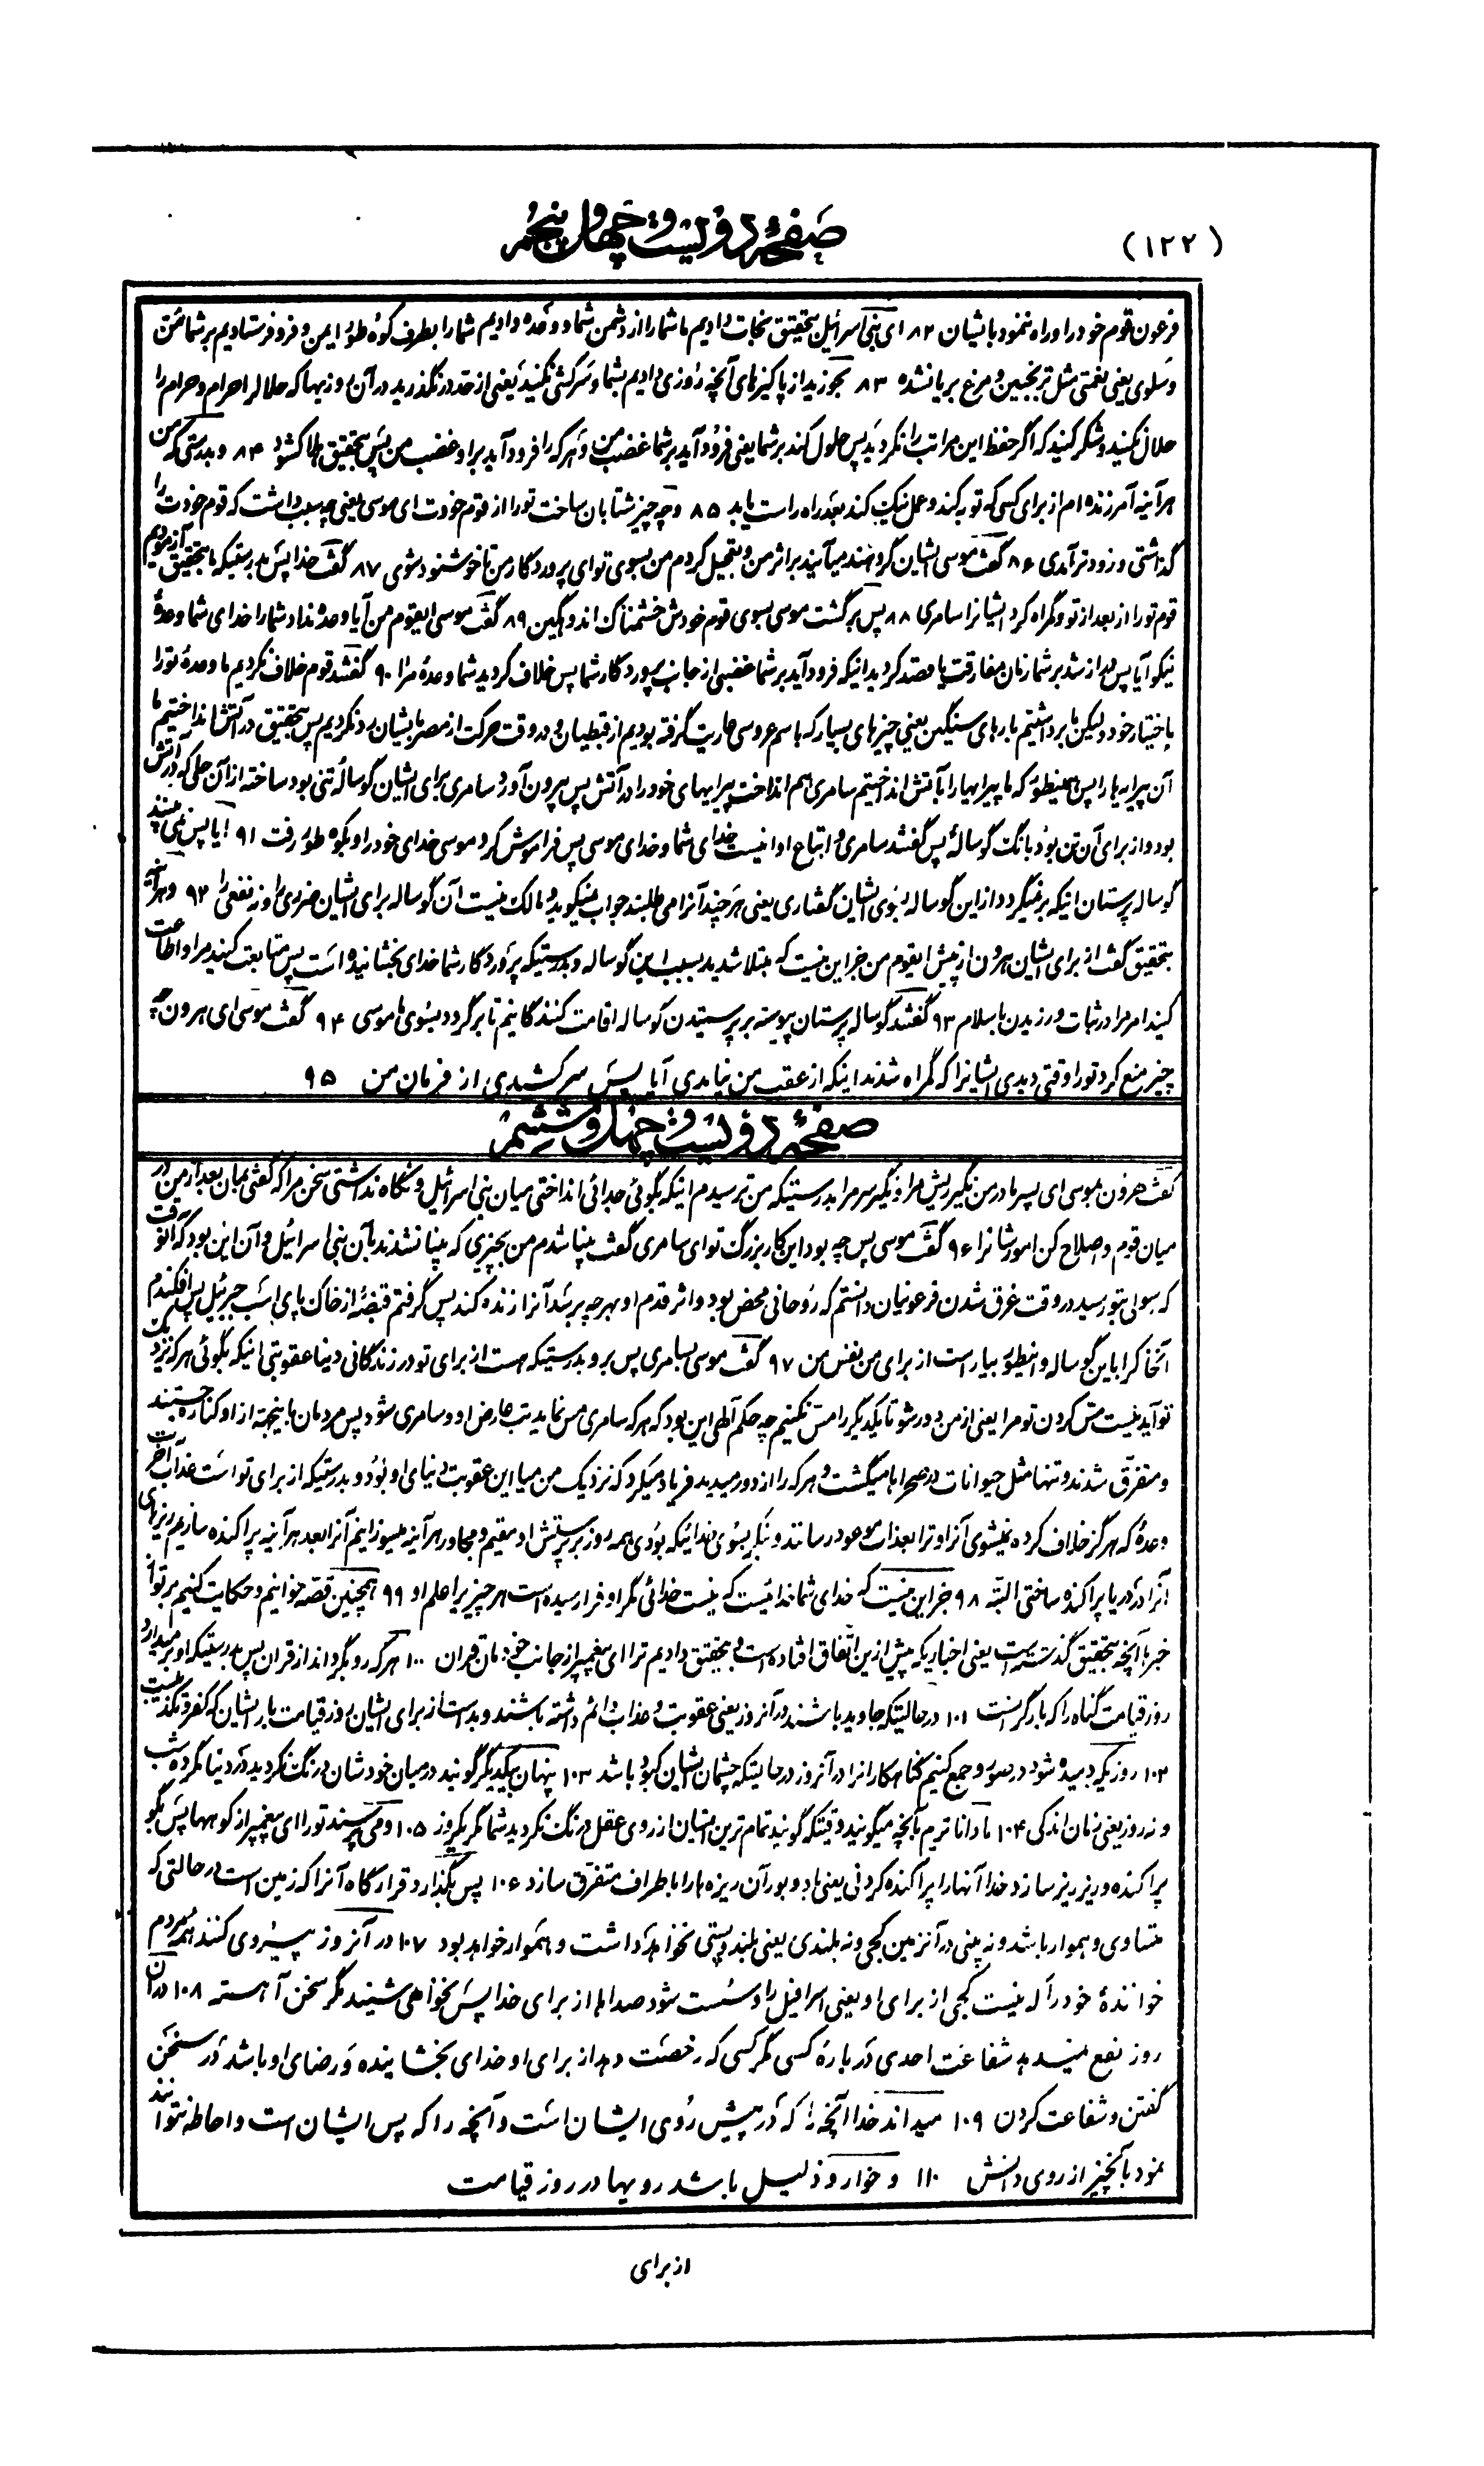 (۱۲۲)
صفحهٔ دویست و چهل و پنجم
فرعون قوم خود را و راه ننمود بایشان ۸۲ ای بنی اسرائیل بتحقیق نجات دادیم ما شما را از دشمن شما و وعده دادیم شما را بطرف کوه طور ایمن و فرو فرستادیم بر شما من
و سلوی یعنی نعمتی مثل ترنجبین و مرغ بریان شده ۸۳ بخورید از پاکیزهای آنچه روزی دادیم بشما و سرکشی نکنید یعنی از حد در نگذرید در آن روزیها که حلال را حرام و حرام را
حلال نکنید و شکر کنید که اگر حفظ این مراتب را نکردید پس حلول کند بر شما یعنی فرود آید بر شما غضب من و هر که را فرود آید بر او غضب من پس بتحقیق هلاک شود ۸۴ و بدرستی که من
هر آینه آمرزنده ام از برای کسی که توبه کند و عمل نیک کند بعد راه راست یابد ۸۵ و چه چیز شتابان ساخت تو را از قوم خودت ای موسی یعنی چه سبب داشت که قوم خودت را
گذاشتی و زودتر آمدی ۸۶ گفت موسی ایشان گروهند میآیند بر اثر من و تعجیل کردم من بسوی تو ای پروردگار من تا خوشنود شوی ۸۷ گفت خدا پس بدرستیکه ما بتحقیق آزمودیم
قوم تو را از بعد از تو و گمراه کرد ایشانرا سامری ۸۸ پس برگشت موسی بسوی قوم خودش خشمناک اندوهگین ۸۹ گفت موسی ایقوم من آیا وعده نداد شما را خدای شما وعدهٔ
نیکو آیا پس دراز شد بر شما زمان مفارقت یا قصد کردید اینکه فرود آید بر شما غضبی از جانب پروردگار شما پس خلاف کردید شما وعدهٔ مرا ۹۰ گفتند قوم خلاف نکردیم ما وعدهٔ تو را
باختیار خود و لیکن ما برداشتیم بارهای سنگین یعنی چیزهای بسیار که باسم عروسی عاریت گرفته بودیم از قبطیان و در وقت حرکت از مصر بایشان رد نکردیم پس بتحقیق در آتش انداختیم ما
آن پیرایه ها را پس همینطور که ما پیرایهها را بآتش انداختیم سامری هم انداخت پیرایهای خود را در آتش پس بیرون آورد سامری برای ایشان گوسالهٔ تنی بود ساخته از آن حلی که در آتش
بود و از برای آن تن بود بانگ گوسالهٔ پس گفتند سامری و اتباع او اینست خدای شما و خدای موسی پس فراموش کرد موسی خدای خود را و بکوه طور رفت ۹۱ آیا پس نمی بینند
گوساله پرستان اینکه بر نمیگردد از این گوساله بسوی ایشان گفتاری یعنی هر چند آنرا می طلبند جواب نمیگوید و مالک نیست آن گوساله برای ایشان ضرری را و نه نفعی را ۹۲ و هر آینه
بتحقیق گفت از برای ایشان هرون از پیش ایقوم من جز این نیست که مبتلا شدید بسبب این گوساله و بدرستیکه پروردگار شما خدای بخشاینده است پس متابعت کنید مرا و اطاعت
کنید امر مرا در ثبات ورزیدن باسلام ۹۳ گفتند گوساله پرستان پیوسته بر پرستیدن گوساله اقامت کنندگانیم تا برگردد بسوی ما موسی ۹۴ گفت موسی ای هرون چه
چیز منع کرد تو را وقتی دیدی ایشانرا که گمراه شدند اینکه از عقب من نیامدی آیا پس سرکشیدی از فرمان من ۹۵
صفحهٔ دویست و چهل و ششم
گفت هرون بموسی ای پسر مادر من نگیر ریش مرا و نگیر سر مرا بدرستیکه من ترسیدم اینکه بگوئی جدائی انداختی میان بنی اسرائیل و نگاه نداشتی سخن مرا که گفتی بمان بعد از من در
میان قوم و اصلاح کن امورشانرا ۹۶ گفت موسی پس چه بود این کار بزرگ تو ای سامری گفت بینا شدم من بچیزی که بینا نشدند بآن بنی اسرائیل و آن این بود که آنوقت
که سولی بتو رسید در وقت غرق شدن فرعونیان دانستم که روحانی محض بود و اثر قدم او بهر چه برسد آنرا زنده کند پس گرفتم قبضهٔ از خاک پای اسب جبرئیل پس افکندم
آنخاک را باین گوساله و اینطور بیاراست از برای من نفس من ۹۷ گفت موسی بسامری پس برو بدرستیکه هست از برای تو در زندگانی دنیا عقوبتی اینکه بگوئی هر که نزدیک
تو آید نیست مس کردن تو مرا یعنی از من دور شو تا یکدیگر را مس نکنیم چه حکم آلهی این بود که هر که سامری مس نماید تب عارض او و سامری شود پس مردمان باینجهة از او کناره جستند
و متفرق شدند و تنها مثل حیوانات در صحراها میگشت و هر که را از دور میدید فریاد میکرد که نزدیک من میا این عقوبت دنیای او بود و بدرستیکه از برای تو است عذاب آخرت
وعدهٔ که هرگز خلاف کرده نمیشوی آنرا و ترا بعذاب موعود رسانند و بنگر بسوی خدائیکه بودی همه روز بر پرستش او مقیم و مجاور هر آینه میسوزانیم آنرا بعد هر آینه پراکنده سازیم ریزهای
آنرا در دریا پراکنده ساختی البته ۹۸ جز این نیست که خدای شما خدائیست که نیست خدائی مگر او فرا رسیده است هر چیز را علم او ۹۹ همچنین قصه خوانیم و حکایت کنیم بر تو از
خبرها آنچه بتحقیق گذشته است یعنی اخباریکه پیش ازین اتفاق افتاده است و بتحقیق دادیم ترا ای پیغمبر از جانب خودمان قران ۱۰۰ هر که رو بگرداند از قران پس بدرستیکه او بر میدارد
روز قیامت گناه را که بار گرانست ۱۰۱ در حالتیکه جاوید باشند در آنروز یعنی عقوبت و عذاب دائم داشته باشند و بد است از برای ایشان روز قیامت بار ایشان که کفر و تکذیبست
۱۰۲ روزیکه دمیده شود در صور و جمع کنیم گناهکارانرا در آنروز در حالتیکه چشمان ایشان کبود باشد ۱۰۳ پنهان بیکدیگر گویند در میان خودشان درنگ نکردید در دنیا مگر ده شب
و نه روز یعنی زمان اندکی ۱۰۴ ما داناتریم بآنچه میگویند وقتیکه گوید تمام ترین ایشان از روی عقل درنگ نکردید شما مگر یکروز ۱۰۵ و می پرسند تو را ای پیغمبر از کوهها پس بگو
پراکنده و ریز ریز سازد خدا آنها را پراکنده کردنی یعنی باد و بور آن ریزه ها را باطراف متفرق سازد ۱۰۶ پس بگذارد قرارگاه آنرا که زمین است در حالتی که
متساوی و هموار باشد و نه بینی در آنزمین کجی و نه بلندی یعنی بلند و پستی نخواهد داشت و هموار خواهد بود ۱۰۷ در آنروز پیروی کنند همه مردم
خوانندهٔ خود را که نیست کجی از برای او یعنی اسرافیل را و سست شود صداها از برای خدا پس نخواهی شنید مگر سخن آهسته ۱۰۸ در آن
روز نفع نمیدهد شفاعت احدی در باره کسی مگر کسی که رخصت دهد از برای او خدای بخشاینده و رضای او باشد در سخن
گفتن و شفاعت کردن ۱۰۹ میداند خدا آنچه را که در پیش روی ایشان است و آنچه را که پس ایشان است و احاطه نتوانند
نمود بآنچیز از روی دانش ۱۱۰ و خوار و ذلیل باشد رویها در روز قیامت
از برای